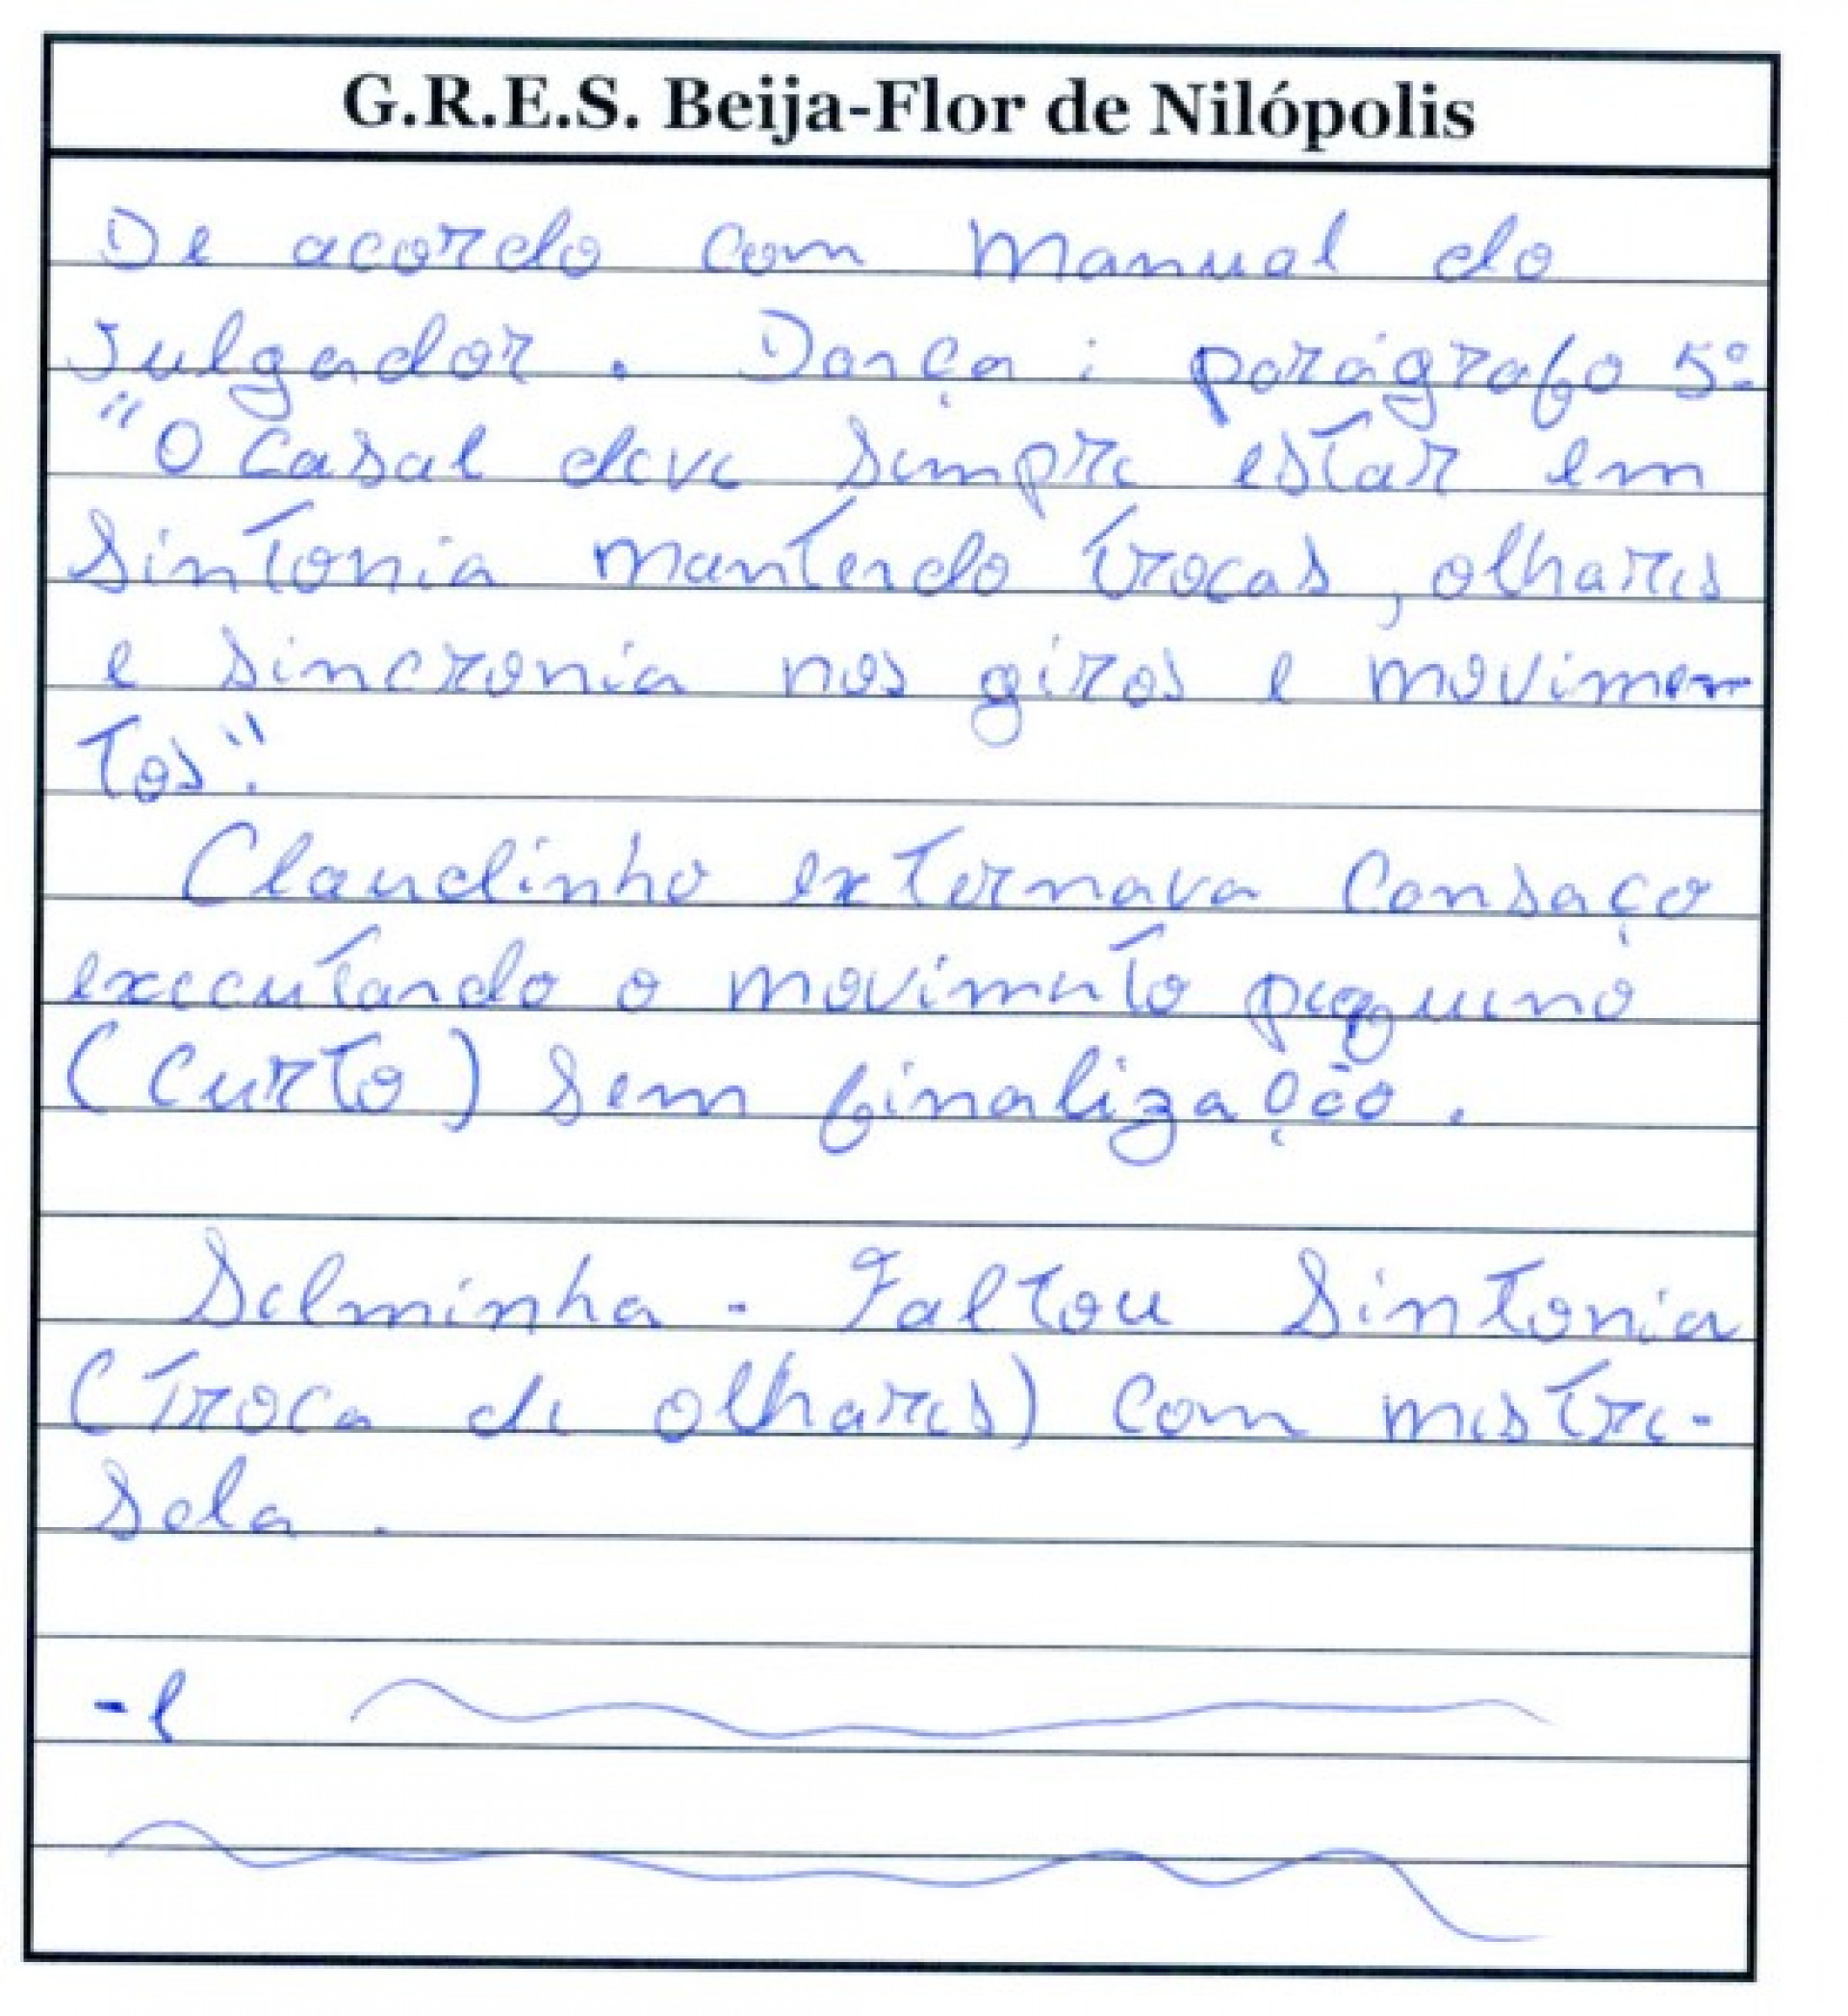 G.R.E.S. Beija-Flor de Nilópolis
De acordo com Manual do
Julgador. Dança: parágrafo 5º
"O Casal deve sempre estar em
sintonia mantendo trocas, olhares
e sincronia nos giros e movimen
tos".
Claudinho externava cansaço
executando o movimento pequeno
(curto) sem finalização.
Selminha - Faltou sintonia
(troca de olhares) com mestre-
sala.